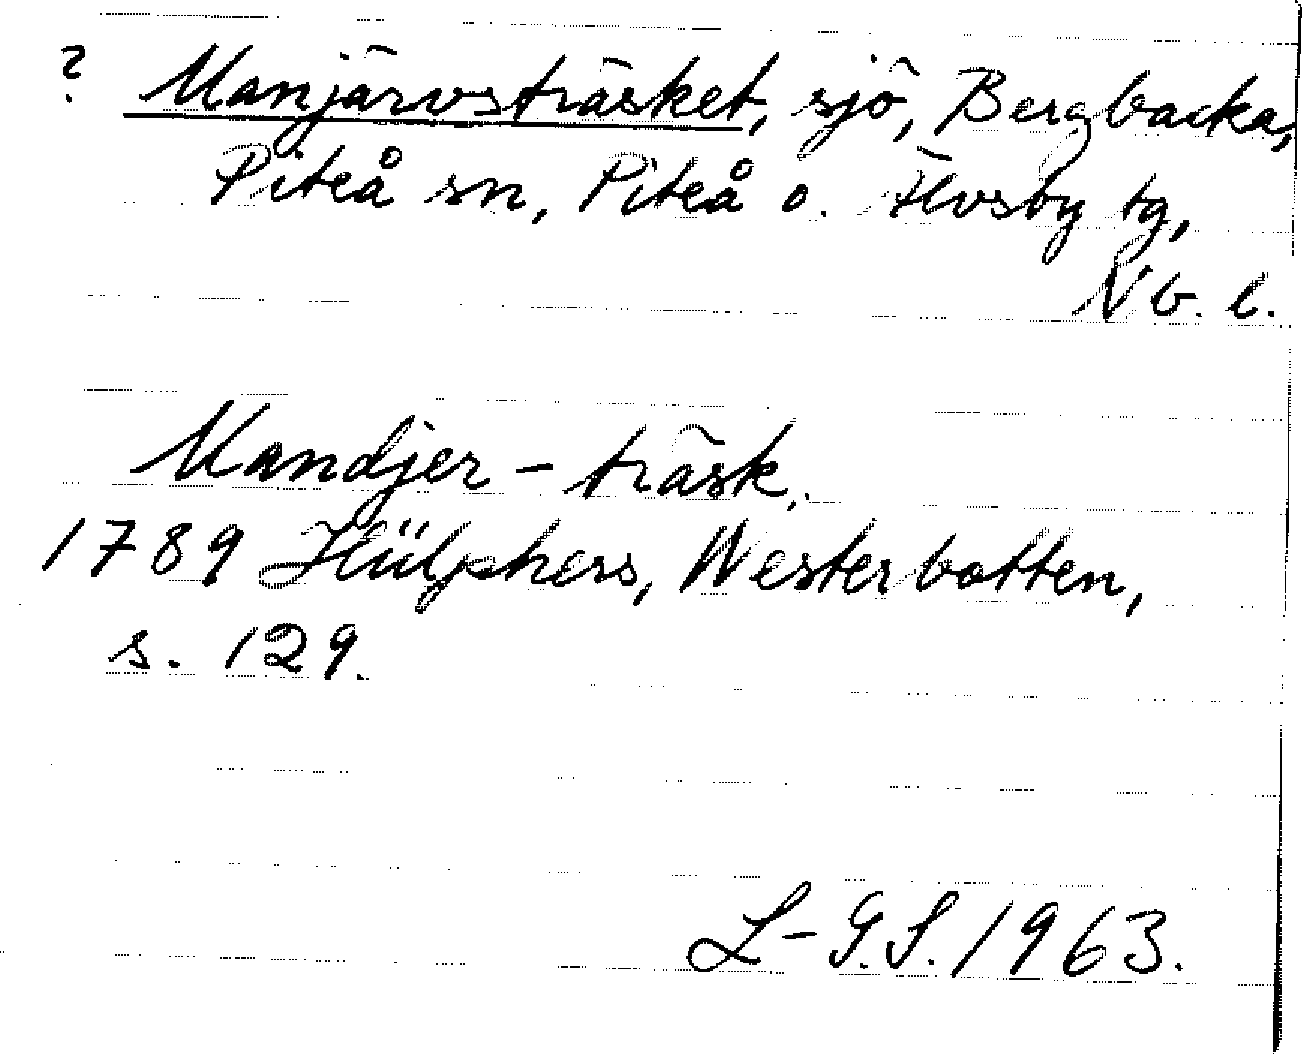 ? Manjärvsträsket, sjö, Bergbacka,
Piteå sn, Piteå o. Älvsby tg,
Nb. l.
Mandjer - träsk.
1789 Hülphers, Westerbotten,
s. 129.
L-G.S. 1963.